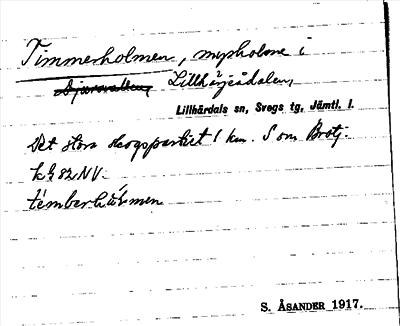 Timmerholmen, myrholme i
Djursvallens Lillhärjeådalen,
Lillhärdals sn, Svegs tg, Jämtl. l.
Det stora skogspartiet 1 km. S om Brotj.
k 82 NV.
témberhúrmen
S. ÅSANDER 1917.